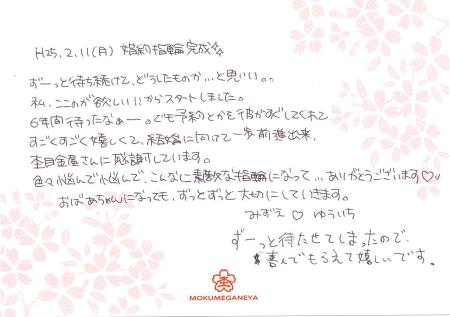 H25.2.11(月) 婚約指輪完成☆
ずーっと待ち続けて、どうしたものか…と思い。。
私、ここのが欲しい!!からスタートしました。
6年間待ったなぁー。でも予約とかも彼がすぐしてくれて
すごくすごく嬉しくて、結婚に向けて一歩前進出来、
杢目金屋さんに感謝しています。
色々悩んで悩んで、こんなに素敵な指輪になって…ありがとうございます♡♡
おばあちゃんになっても、ずっとずっと大切にしていきます。
みずえ ♡ ゆういち
ずーっと待たせてしまったので、
喜んでもらえて嬉しいです。
MOKUMEGANEYA